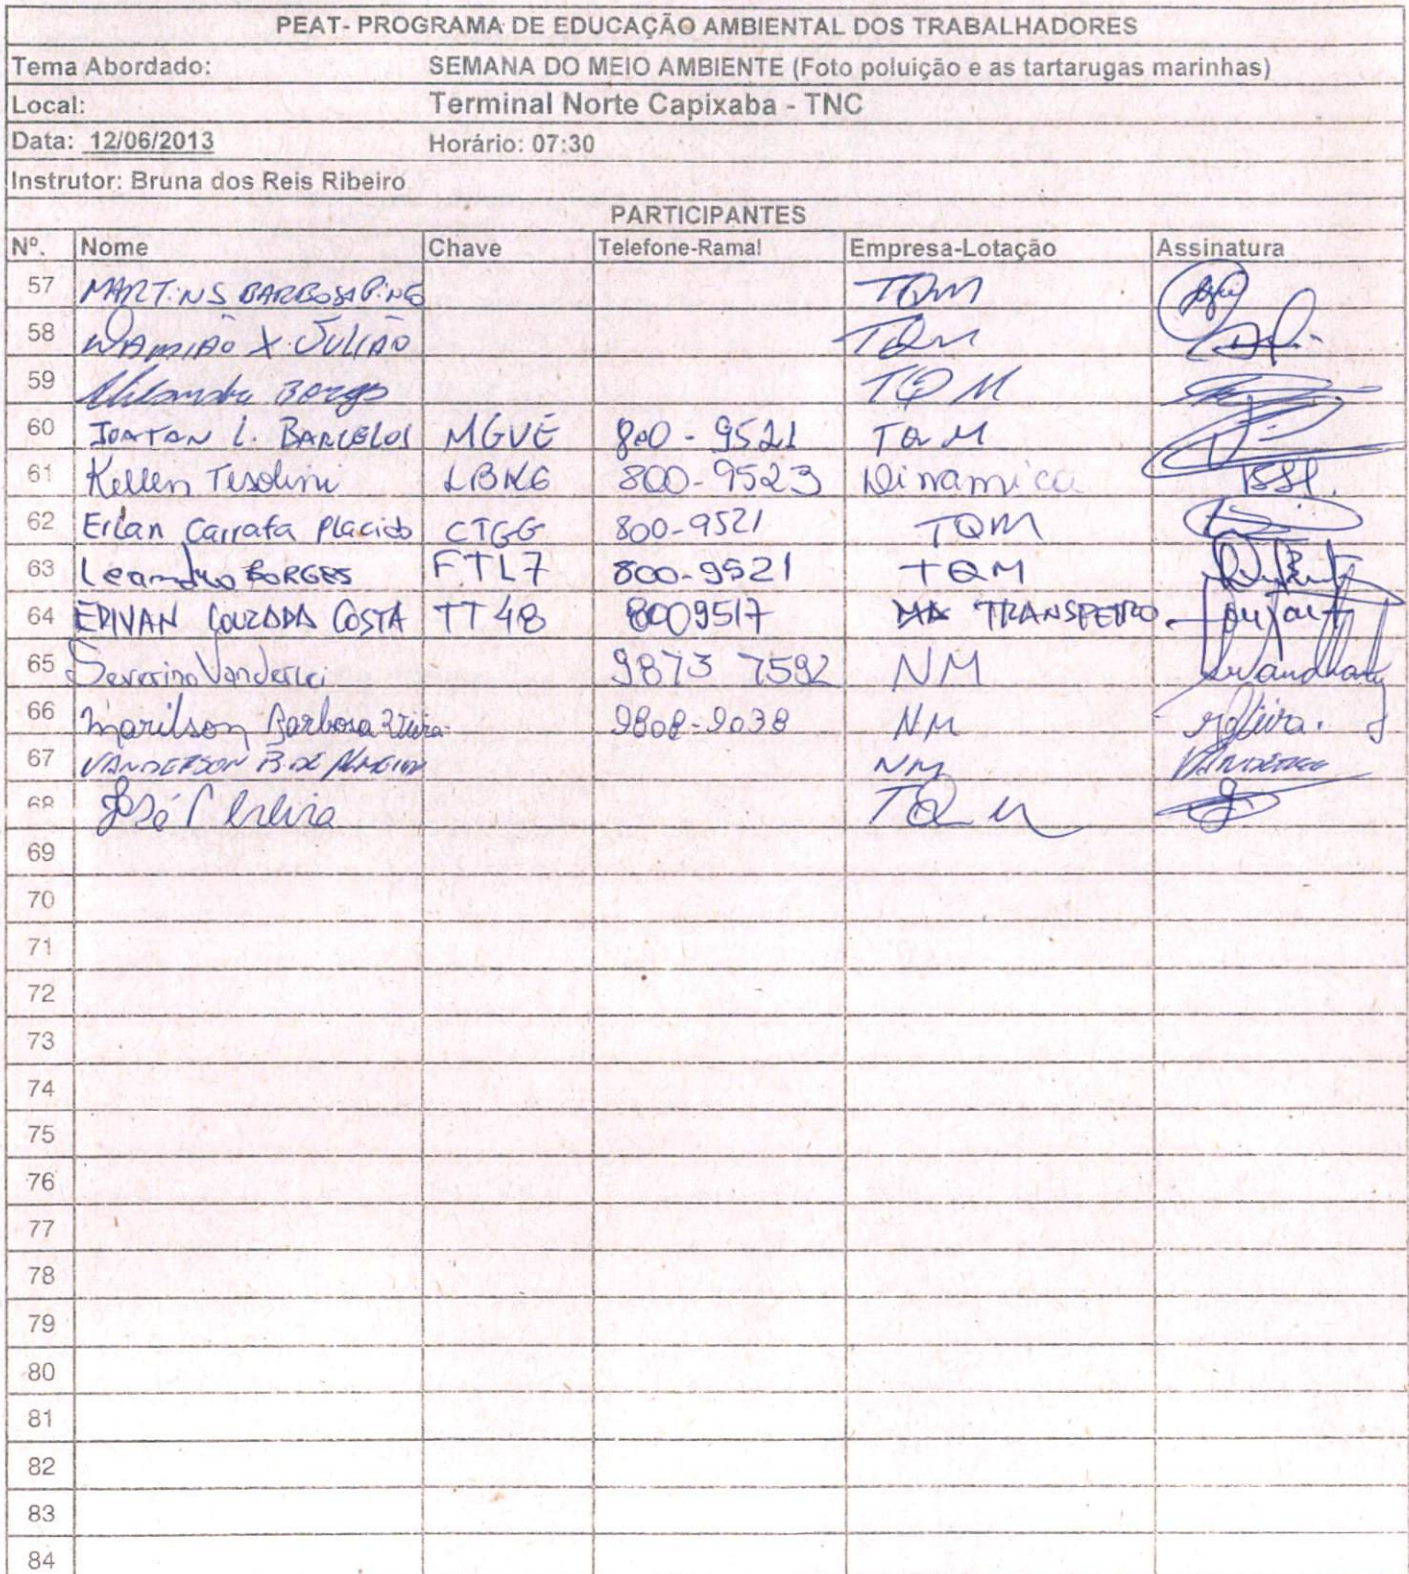 PEAT- PROGRAMA DE EDUCAÇÃO AMBIENTAL DOS TRABALHADORES
Tema Abordado: SEMANA DO MEIO AMBIENTE (Foto poluição e as tartarugas marinhas)
Local: Terminal Norte Capixaba - TNC
Data: 12/06/2013 Horário: 07:30
Instrutor: Bruna dos Reis Ribeiro
PARTICIPANTES
Nº. Nome Chave Telefone-Ramal Empresa-Lotação Assinatura
57 MARTINS BARBOSA TQM
58 DAMIÃO X. JULIÃO TQM
59 Borgs TQM
60 JOATAN L. BARCELOS MGVE 800-9521 TQM
61 Kellen Tesolini LBKG 800-9523 Dinamica
62 Erlan Carrafa Placido CTGG 800-9521 TQM
63 Leandro BORGES FTL7 800-9521 TQM
64 EDIVAN LOUZADA COSTA TT48 8009517 TRANSPETRO
65 Severino Vanderlei 9873 7592 NM
66 Marilson Barbosa Vieira 9808-9038 NM
67 VANDERSON B. DE ALMEIDA NM
68 José Pereira TQM
69
70
71
72
73
74
75
76
77
78
79
80
81
82
83
84